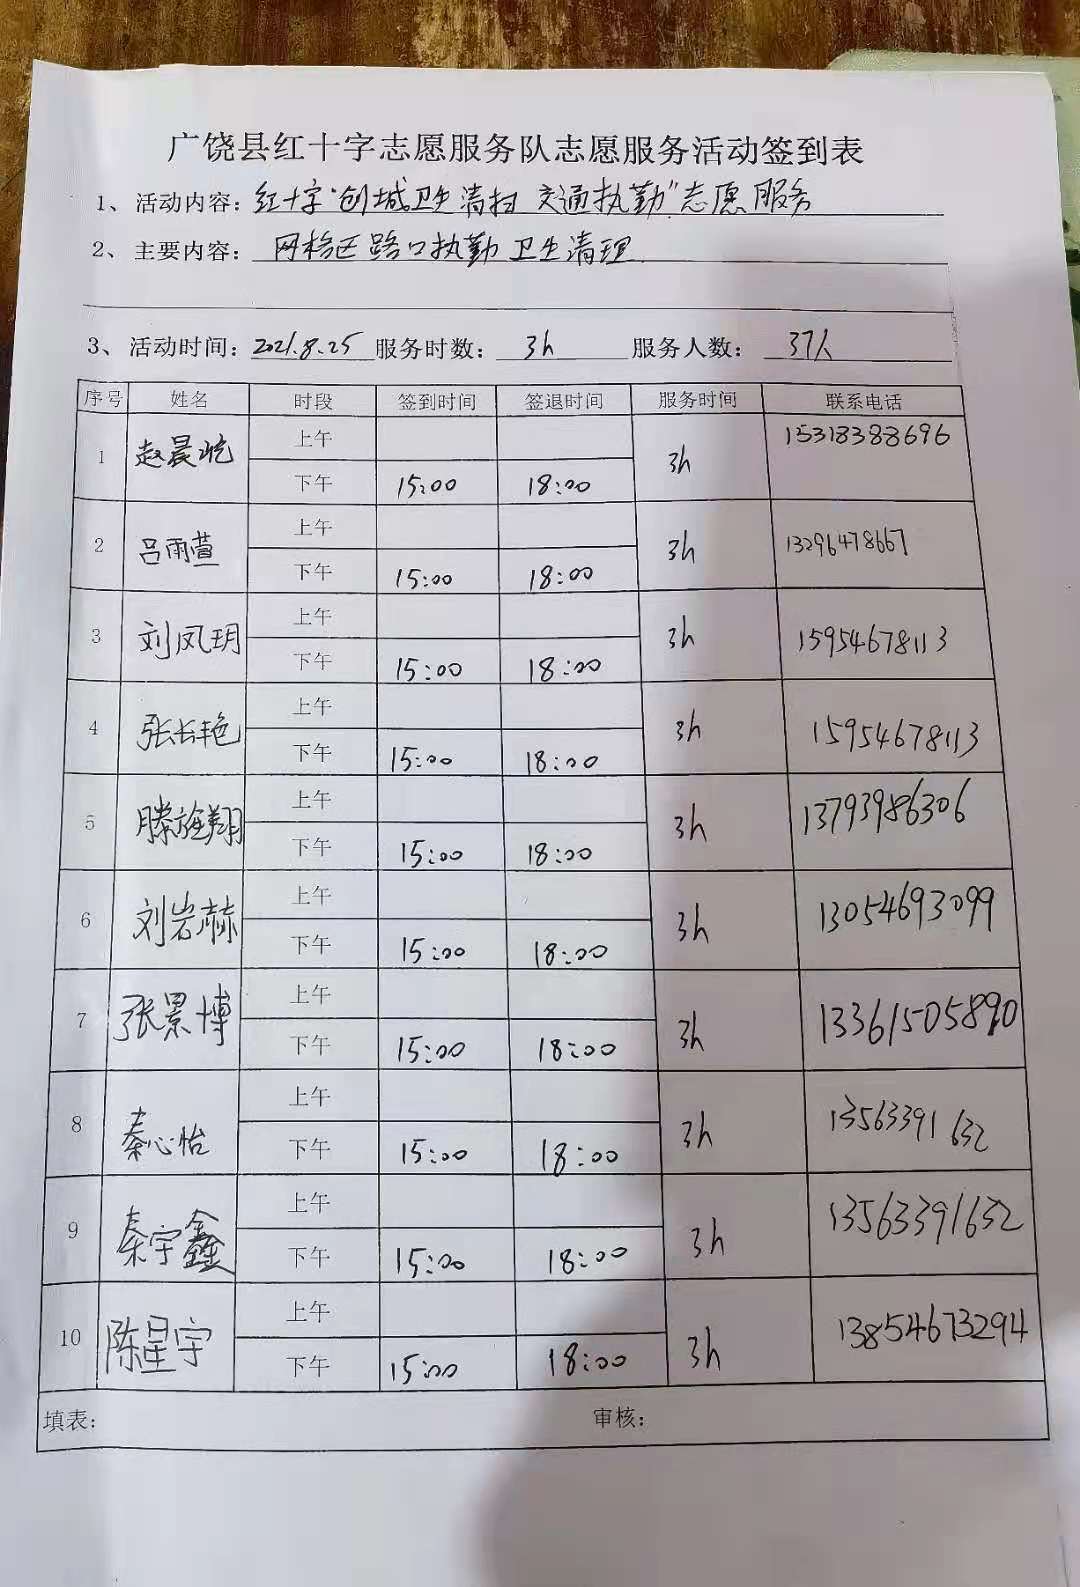 广饶县红十字志愿服务队志愿服务活动签到表
1、活动内容：红十字“创城卫生清扫 交通执勤”志愿服务
2、主要内容：网格区路口执勤 卫生清理
3、活动时间：2021.8.25 服务时数：3h 服务人数：37人
序号 姓名 时段 签到时间 签退时间 服务时间 联系电话
1 赵晨屹 上午 3h 15318388696
下午 15:00 18:00
2 吕雨萱 上午 3h 13296478667
下午 15:00 18:00
3 刘凤玥 上午 3h 15954678113
下午 15:00 18:00
4 张长艳 上午 3h 15954678113
下午 15:00 18:00
5 滕旋翔 上午 3h 13793986306
下午 15:00 18:00
6 刘岩赫 上午 3h 13054693099
下午 15:00 18:00
7 张景博 上午 3h 13361505890
下午 15:00 18:00
8 秦心怡 上午 3h 13563391632
下午 15:00 18:00
9 秦宇鑫 上午 3h 13563391632
下午 15:00 18:00
10 陈星宇 上午 3h 13854673294
下午 15:00 18:00
填表： 审核：